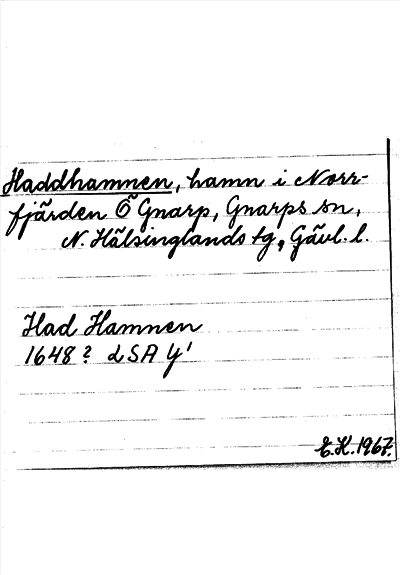 Haddhamnen, hamn i Norr-
fjärden Ö Gnarp, Gnarps sn,
N. Hälsinglands tg, Gävl. l.
Had Hamnen
1648? LSA Y¹
E.H. 1967.